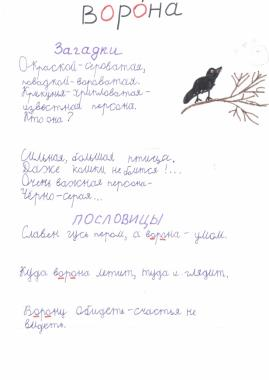 ВОРО́НА
Загадки
Окраской-сероватая,
повадкой-вороватая.
Крикунья-хрипловатая-
известная персона.
Кто она?
Сильная, большая птица.
Даже кошки не боится!...
Очень важная персона-
Чёрно-серая...
ПОСЛОВИЦЫ
Славен гусь пером, а ворона-умом.
Куда ворона летит, туда и глядит.
Ворону обидеть-счастья не
видеть.